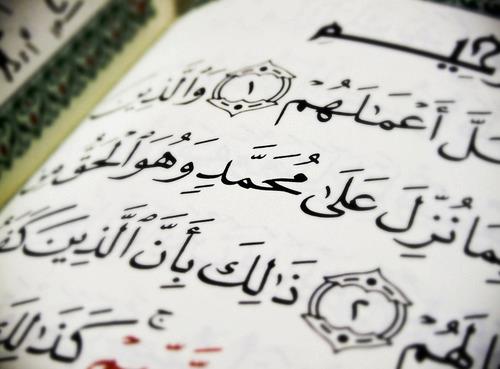 حِيمِ
لَّ أَعْمَٰلَهُمْ ١ وَٱلَّذِينَ
بِمَا نُزِّلَ عَلَىٰ مُحَمَّدٍ وَهُوَ ٱلْحَقُّ
الَهُمْ ٢ ذَٰلِكَ بِأَنَّ ٱلَّذِينَ كَفَ
كَذَٰلِكَ